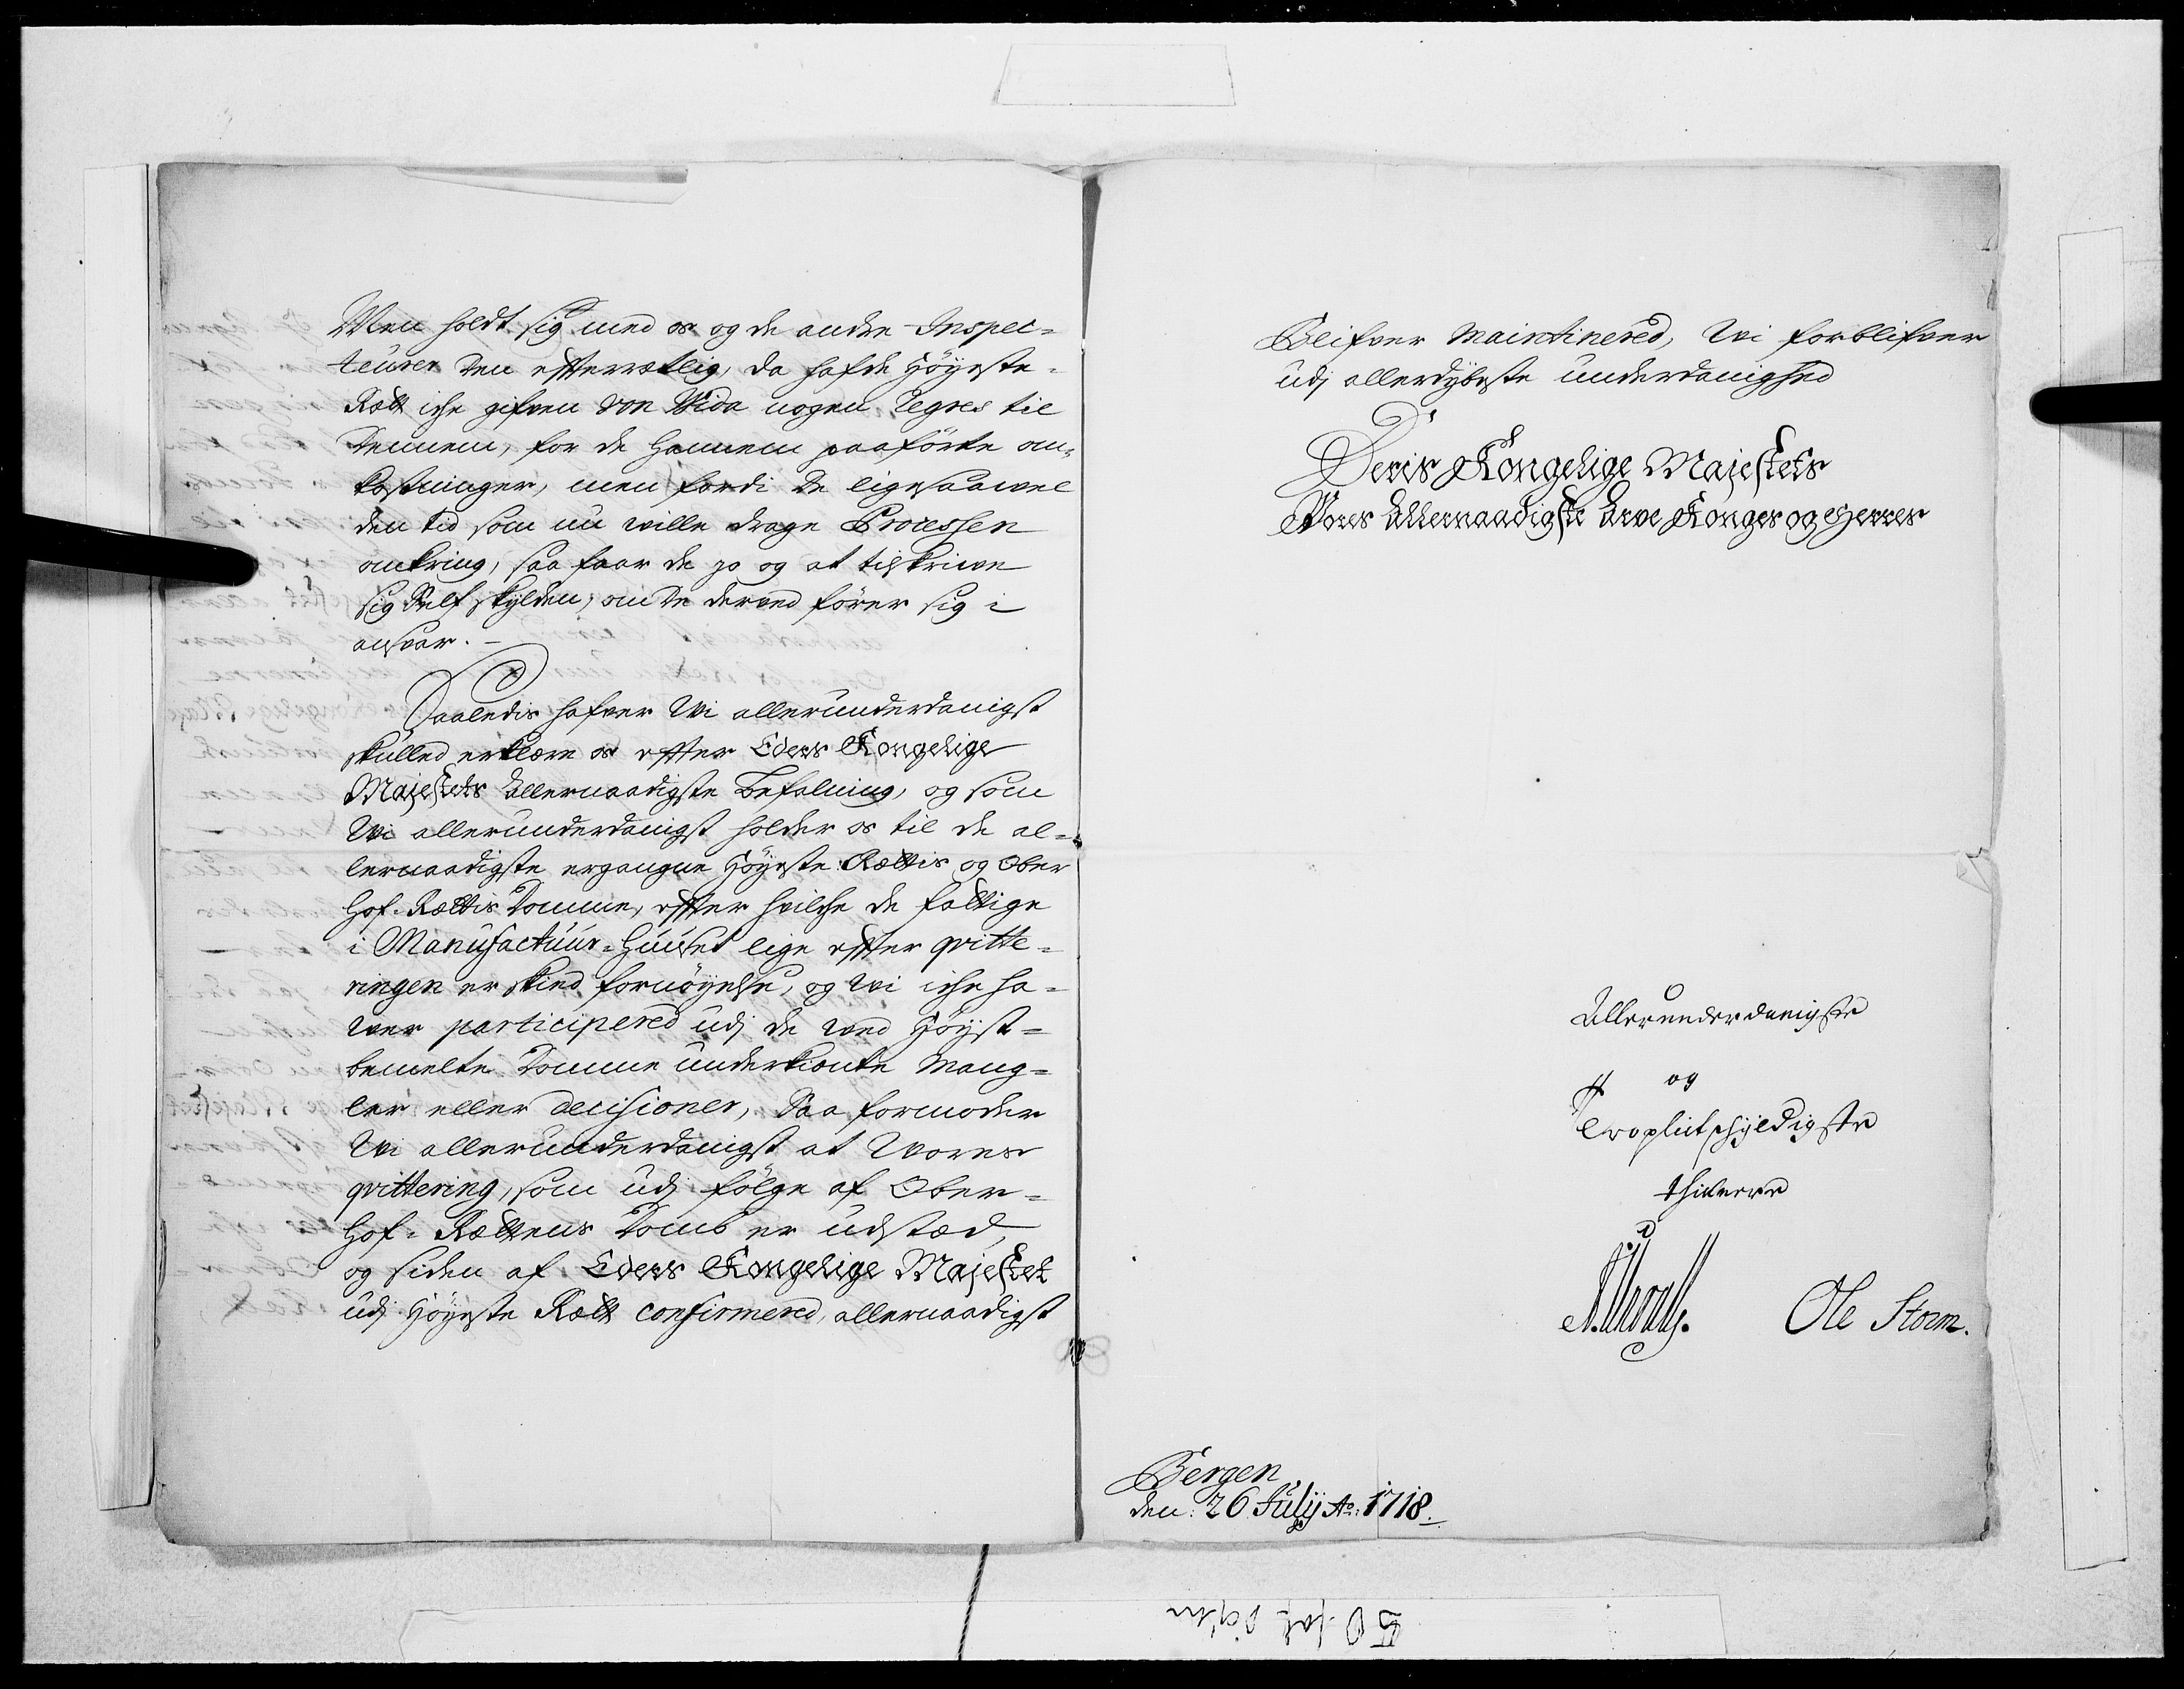 Men holdt sig med os og de andre Inspec=
teurer den efterretlig, da hafde Höyeste-
Rett iche gifven von Wida nogen Regres til
Dennem, for de Hannem paaförte om,
kostninger, men fordi de ligesaavel
den tid som nu wille drage Processen
omkring, saa faar de jo og at tilskrive
sig Self skylden, om de derved förer sig i
ansvar.
Saaledis hafver Wi allerunderdanigst
skulled erklære os efter Eders Kongelige
Majestets Allernaadigste Befalning, og som
Wi allerunderdanigst holder os til de al=
lernaadigste ergangne Höyeste Rettis og Ober
Hof-Rettis Domme, efter hvilche de fattige
i Manufactuur=Huuset lige efter qvitte=
ringen er skeed fornöyelse, og wi iche ha=
wer participered udj de wed Höyst=
bemelte Domme underkiente Mang=
ler eller decisioner, Saa formoder
Wi allerunderdanigst at Wores
qvittering, som udj fölge af Ober=
Hof-Rettens Domb er udstæd,
og siden af Eders Kongelige Majestet
udj Höyeste Rett confirmered, allernaadigst
Blifver Maintinered, Wi forblifver
udj allerdybeste underdanighed
Deris Kongelige Majestets
Wores Allernaadigste Arve Konges og Herres
Allerunderdanigste
og
troplictschyldigste
thienere
Ole Storm.
Bergen
den: 26 Julij Ao: 1718.